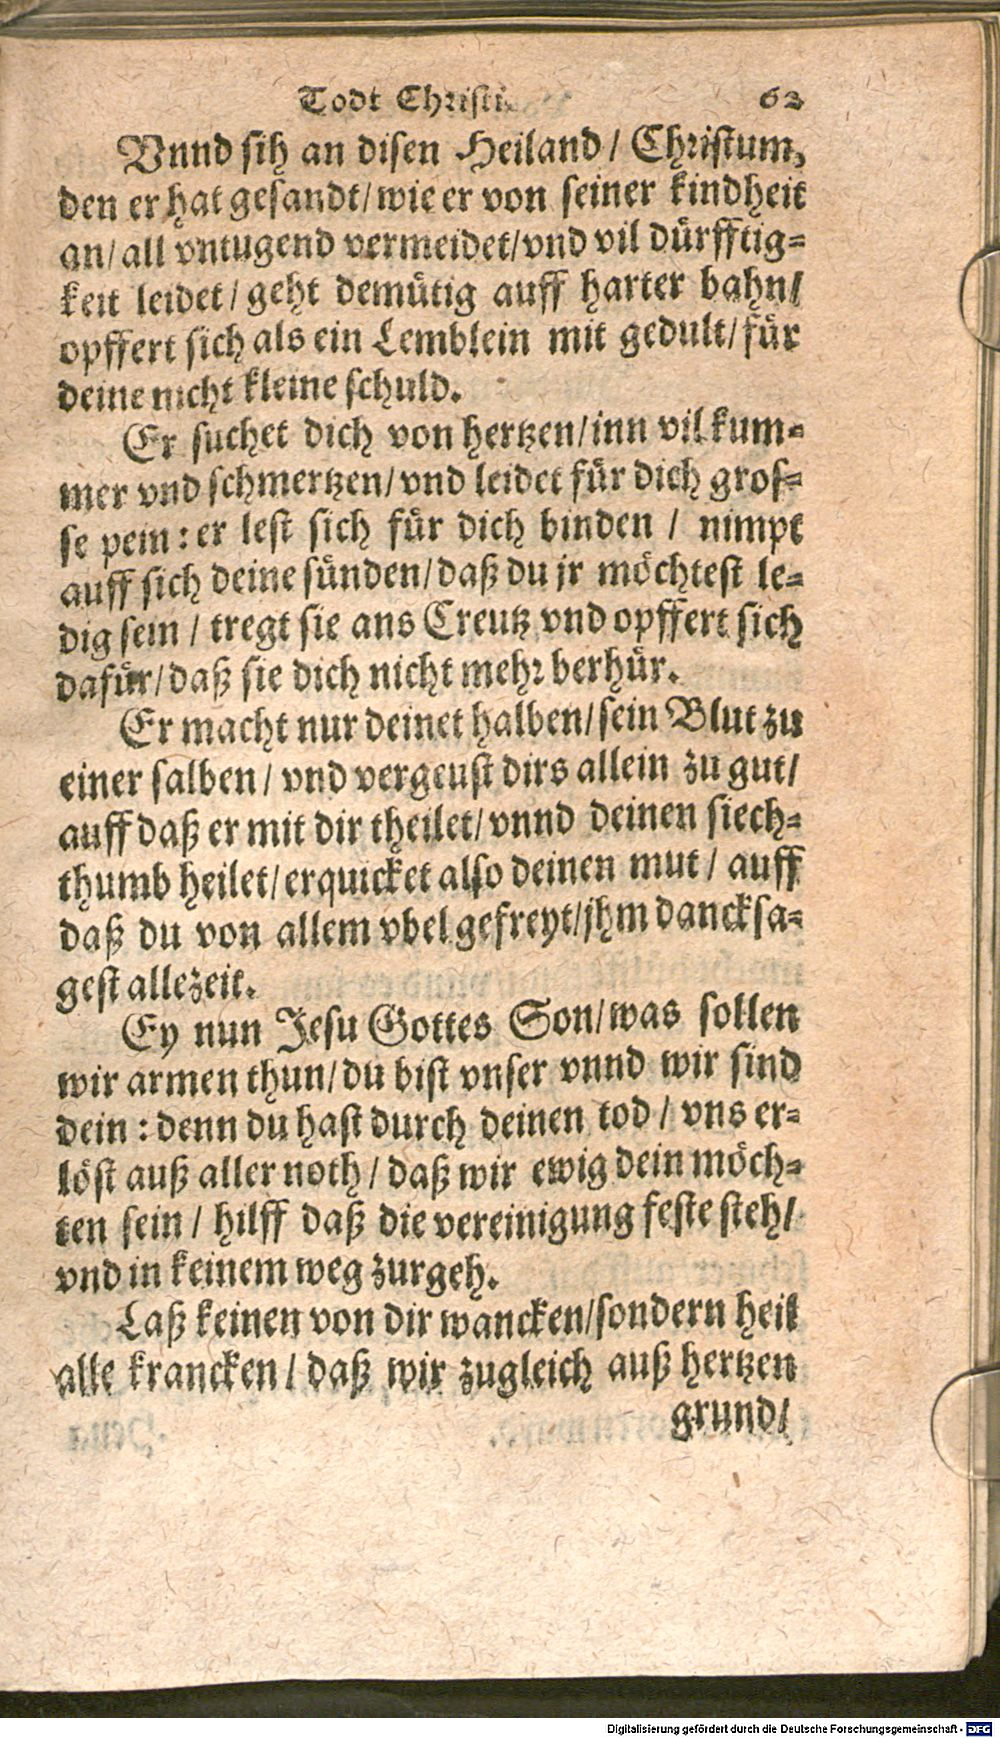 Todt Christi. 62
Vnnd sih an disen Heiland / Christum,
den er hat gesandt/wie er von seiner kindheit
an/all vntugend vermeidet/vnd vil dürfftig-
keit leidet/geht demütig auff harter bahn/
opffert sich als ein Lemblein mit gedult/für
deine nicht kleine schuld.
Er suchet dich von hertzen/inn vil kum-
mer vnd schmertzen/vnd leidet für dich gros-
se pein: er lest sich für dich binden / nimpt
auff sich deine sünden/daß du jr möchtest le-
dig sein / tregt sie ans Creutz vnd opffert sich
dafür/daß sie dich nicht mehr berhür.
Er macht nur deinet halben/sein Blut zu
einer salben/ vnd vergeust dirs allein zu gut/
auff daß er mit dir theilet/vnnd deinen siech-
thumb heilet/erquicket also deinen mut / auff
daß du von allem vbel gefreyt/jhm dancksa-
gest allezeit.
Ey nun Jesu Gottes Son/was sollen
wir armen thun/du bist vnser vnnd wir sind
dein: denn du hast durch deinen tod / vns er-
löst auß aller noth / daß wir ewig dein möch-
ten sein / hilff daß die vereinigung feste steh/
vnd in keinem weg zurgeh.
Laß keinen von dir wancken/sondern heil
alle krancken / daß wir zugleich auß hertzen
grund/
Digitalisierung gefördert durch die Deutsche Forschungsgemeinschaft - DFG